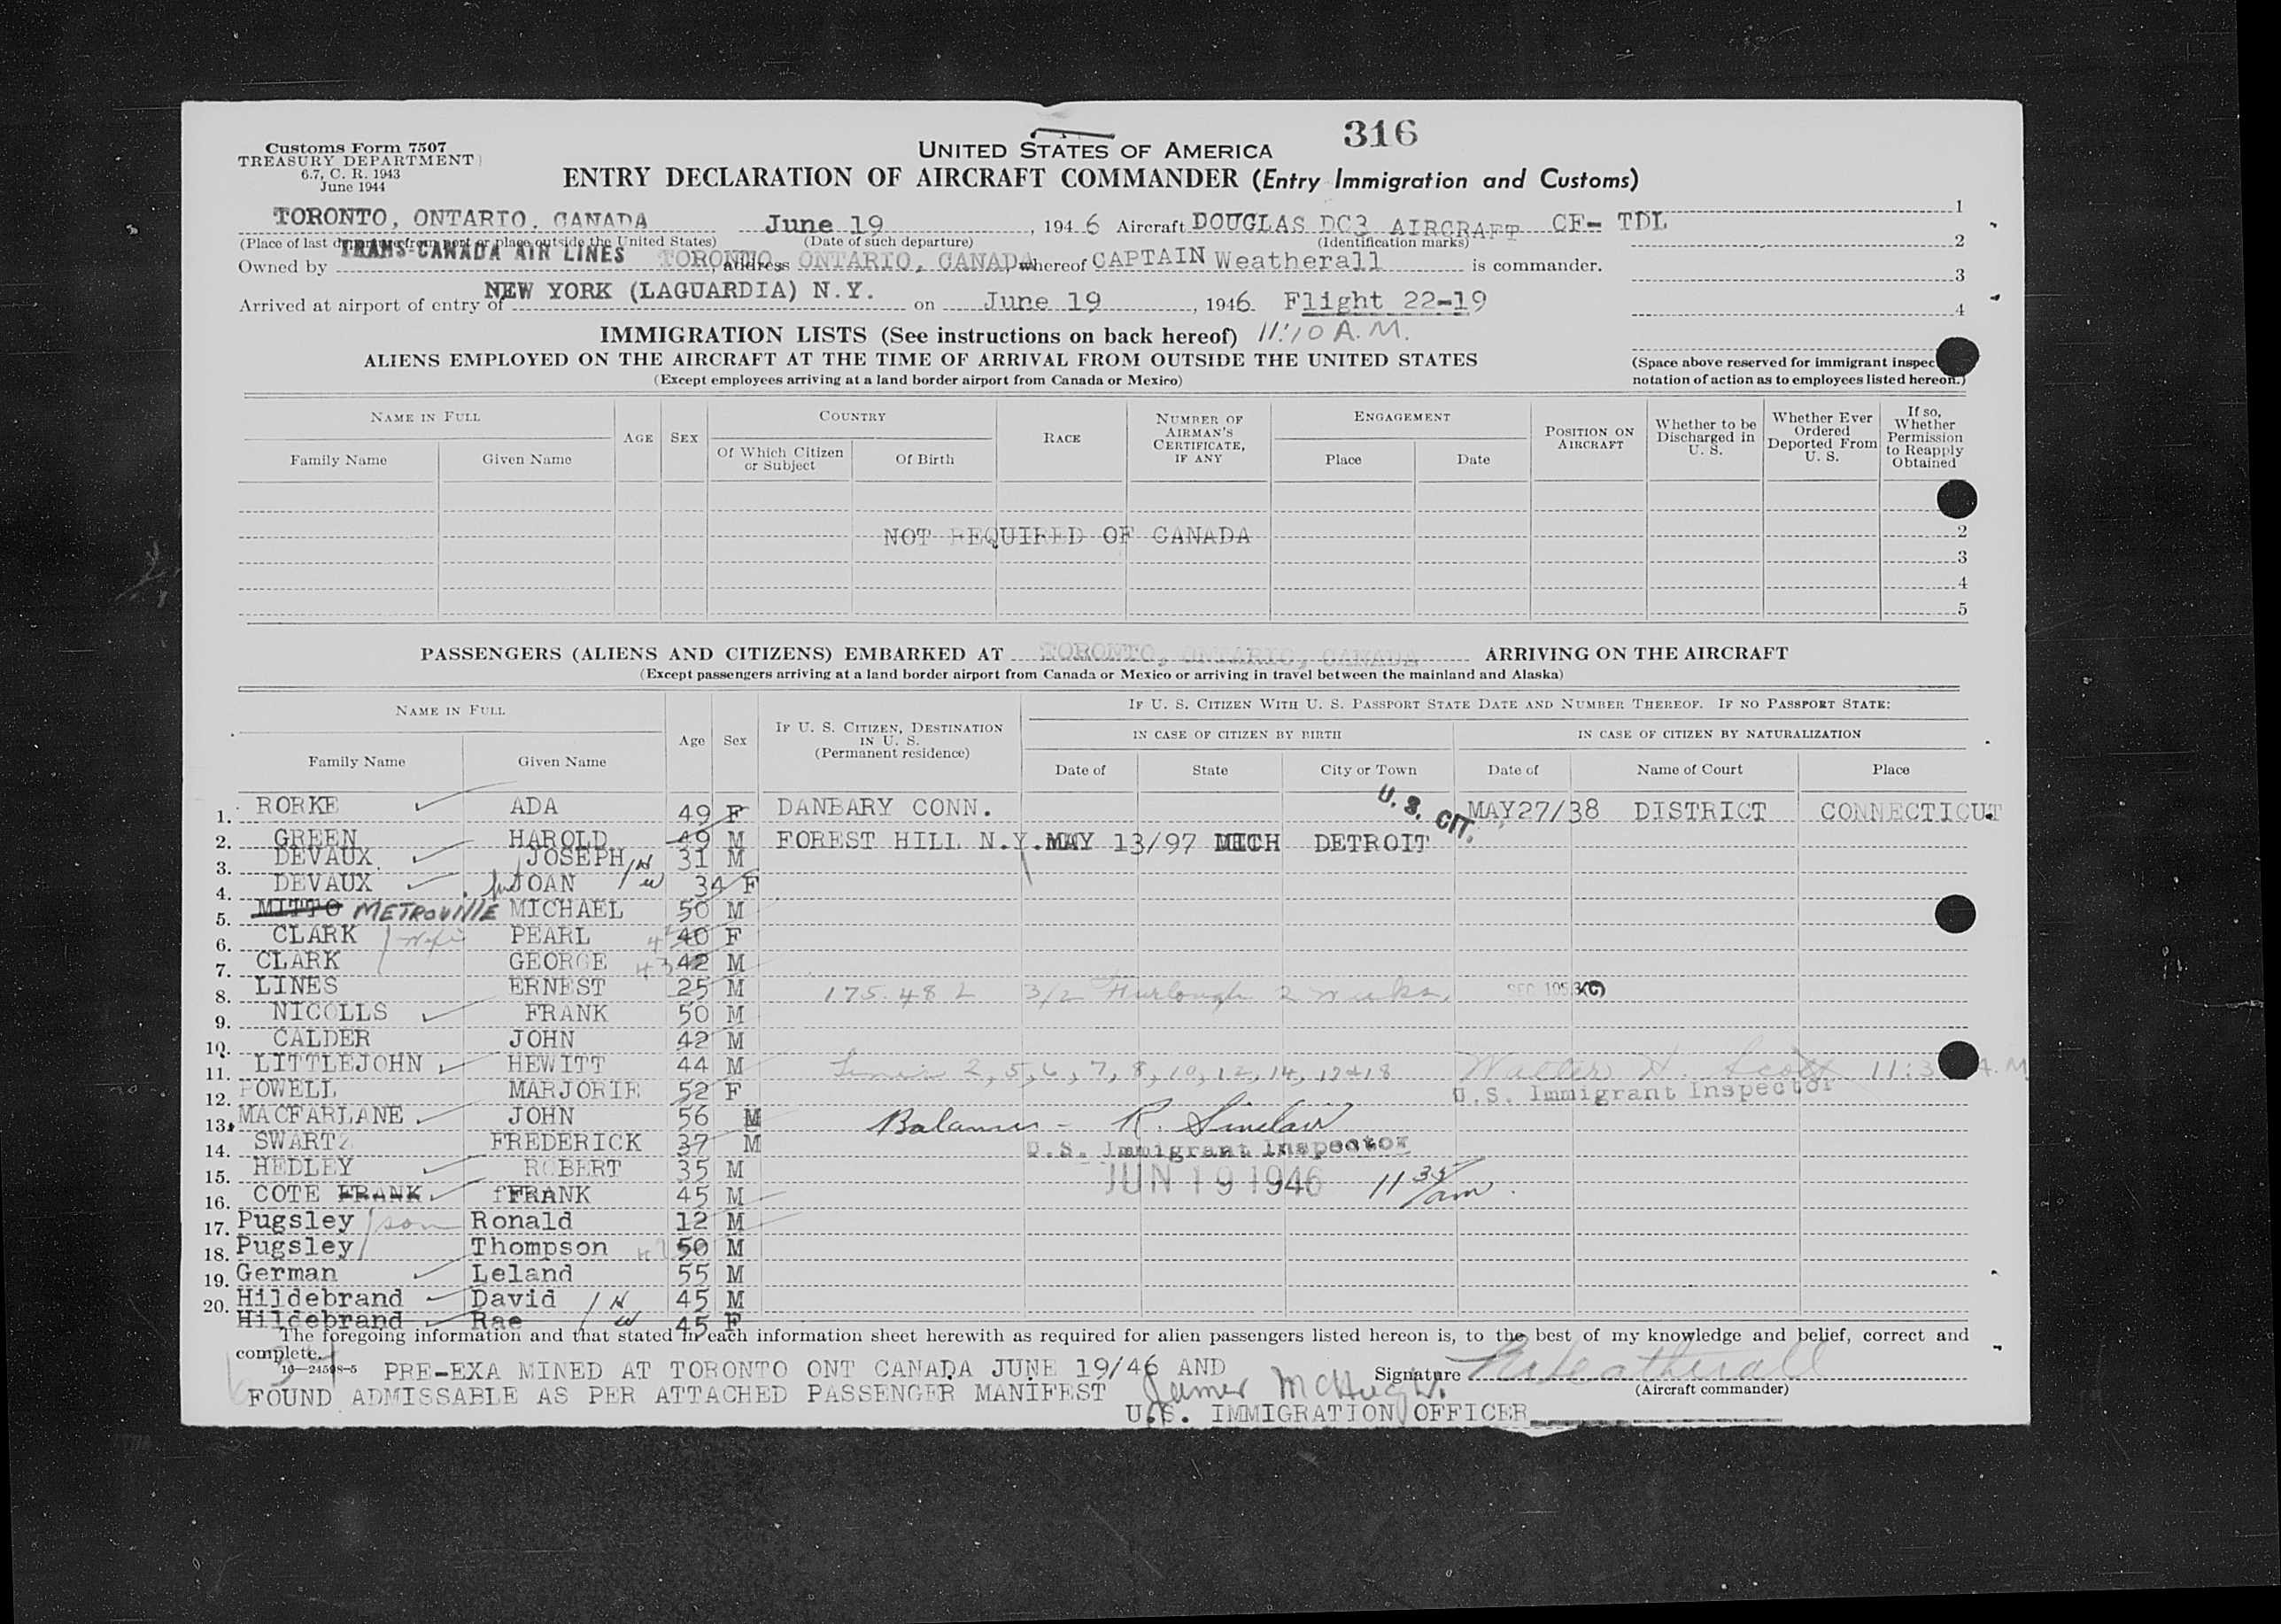 316
Customs Form 7507
TREASURY DEPARTMENT
6.7, C. R. 1943
June 1944
UNITED STATES OF AMERICA
ENTRY DECLARATION OF AIRCRAFT COMMANDER (Entry Immigration and Customs)
TORONTO, ONTARIO, CANADA June 19, 1946 Aircraft DOUGLAS DC3 AIRCRAFT CF- TDL 1
(Place of last departure from port or place outside the United States) (Date of such departure) (Identification marks) 2
Owned by TRANS-CANADA AIR LINES TORONTO, address ONTARIO, CANADA whereof CAPTAIN Weatherall is commander.
3
Arrived at airport of entry of NEW YORK (LAGUARDIA) N.Y. on June 19, 1946 Flight 22-19
4
IMMIGRATION LISTS (See instructions on back hereof) 11:10 A.M.
ALIENS EMPLOYED ON THE AIRCRAFT AT THE TIME OF ARRIVAL FROM OUTSIDE THE UNITED STATES
(Except employees arriving at a land border airport from Canada or Mexico)
(Space above reserved for immigrant inspec
notation of action as to employees listed hereon.)
NAME IN FULL
Family Name Given Name
AGE SEX
COUNTRY
Of Which Citizen or Subject Of Birth
RACE
NUMBER OF AIRMAN'S CERTIFICATE, IF ANY
ENGAGEMENT
Place Date
POSITION ON AIRCRAFT
Whether to be Discharged in U. S.
Whether Ever Ordered Deported From U. S.
If so, Whether Permission to Reapply Obtained
NOT REQUIRED OF CANADA 2
3
4
5
PASSENGERS (ALIENS AND CITIZENS) EMBARKED AT TORONTO, ONTARIO, CANADA ARRIVING ON THE AIRCRAFT
(Except passengers arriving at a land border airport from Canada or Mexico or arriving in travel between the mainland and Alaska)
NAME IN FULL
Family Name Given Name
Age Sex
IF U. S. CITIZEN, DESTINATION IN U. S.
(Permanent residence)
IF U. S. CITIZEN WITH U. S. PASSPORT STATE DATE AND NUMBER THEREOF. IF NO PASSPORT STATE:
IN CASE OF CITIZEN BY BIRTH IN CASE OF CITIZEN BY NATURALIZATION
Date of State City or Town Date of Name of Court Place
1. RORKE ADA 49 F DANBARY CONN. U. S. CIT. MAY27/38 DISTRICT CONNECTICUT.
2. GREEN HAROLD 49 M FOREST HILL N.Y. MAY 13/97 MICH DETROIT
3. DEVAUX JOSEPH H 31 M
4. DEVAUX JOAN w 34 F
5. MITTO METROVILLE MICHAEL 50 M
6. CLARK wife PEARL 40 F
7. CLARK GEORGE 43 42 M
8. LINES ERNEST 25 M 175482 3/2 Furlough 2 weeks,
9. NICOLLS FRANK 50 M
10. CALDER JOHN 42 M
11. LITTLEJOHN HEWITT 44 M Lines 2, 5, 6, 7, 8, 10, 12, 14, 17 + 18 Walter H. Scott 11:3 A.M.
12. POWELL MARJORIE 52 F U.S. Immigrant Inspector
13. MACFARLANE JOHN 56 M Balance - R. Sinclair
14. SWARTZ FREDERICK 37 M U.S. Immigrant Inspector
15. HEDLEY ROBERT 35 M JUN 19 1946 11 35 am.
16. COTE FRANK FRANK 45 M
17. Pugsley son Ronald 12 M
18. Pugsley Thompson 50 M
19. German Leland 55 M
20. Hildebrand David H 45 M
Hildebrand Rae w 45 F
The foregoing information and that stated in each information sheet herewith as required for alien passengers listed hereon is, to the best of my knowledge and belief, correct and
complete.
16—24598-5 PRE-EXA MINED AT TORONTO ONT CANADA JUNE 19/46 AND Signature Weatherall
FOUND ADMISSABLE AS PER ATTACHED PASSENGER MANIFEST James McHugh. (Aircraft commander)
U.S. IMMIGRATION OFFICER